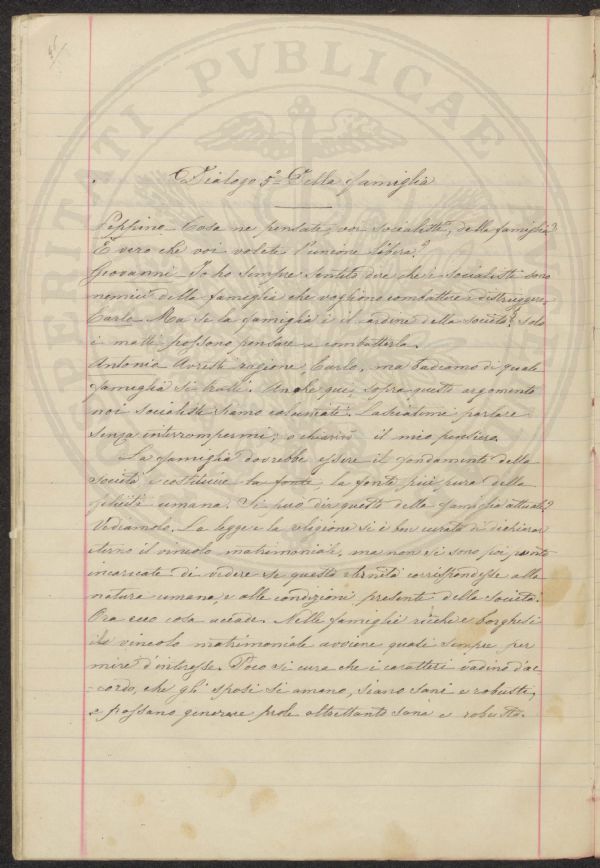 Dialogo 5º Della famiglia
Peppino Cosa ne pensate, voi socialisti, della famiglia?
È vero che voi volete l'unione libera?
Giovanni Io ho sempre sentito dire che i socialisti sono
nemici della famiglia che vogliono combattere e distruggere
Carlo Ma se la famiglia è il cardine della società! solo
i matti possono pensare a combatterla.
Antonio Avresti ragione, Carlo, ma badiamo di quale
famiglia si tratti. Anche qui, sopra questo argomento
noi socialisti siamo calunniati. Lasciatemi parlare
senza interrompermi, e chiarirò il mio pensiero.
La famiglia dovrebbe essere il fondamento della
società e costituire la fonte, la fonte più pura della
felicità umana. Si può dir questo della famiglia attuale?
Vediamolo. La legge e la religione si è ben curata di dichiarar
eterno il vincolo matrimoniale, ma non si sono poi
incaricate di vedere se questa eternità corrispondesse alla
natura umana, e alle condizioni presenti della società.
Ora ecco cosa accade. Nelle famiglie ricche e borghesi
il vincolo matrimoniale avviene quasi sempre per
mire d'interesse. Poco si cura che i caratteri vadino d'ac-
cordo, che gli sposi si amano, siano sani e robusti,
e possano generare prole altrettanto sana e robusta.
PROSPERITATI PVBLICAE